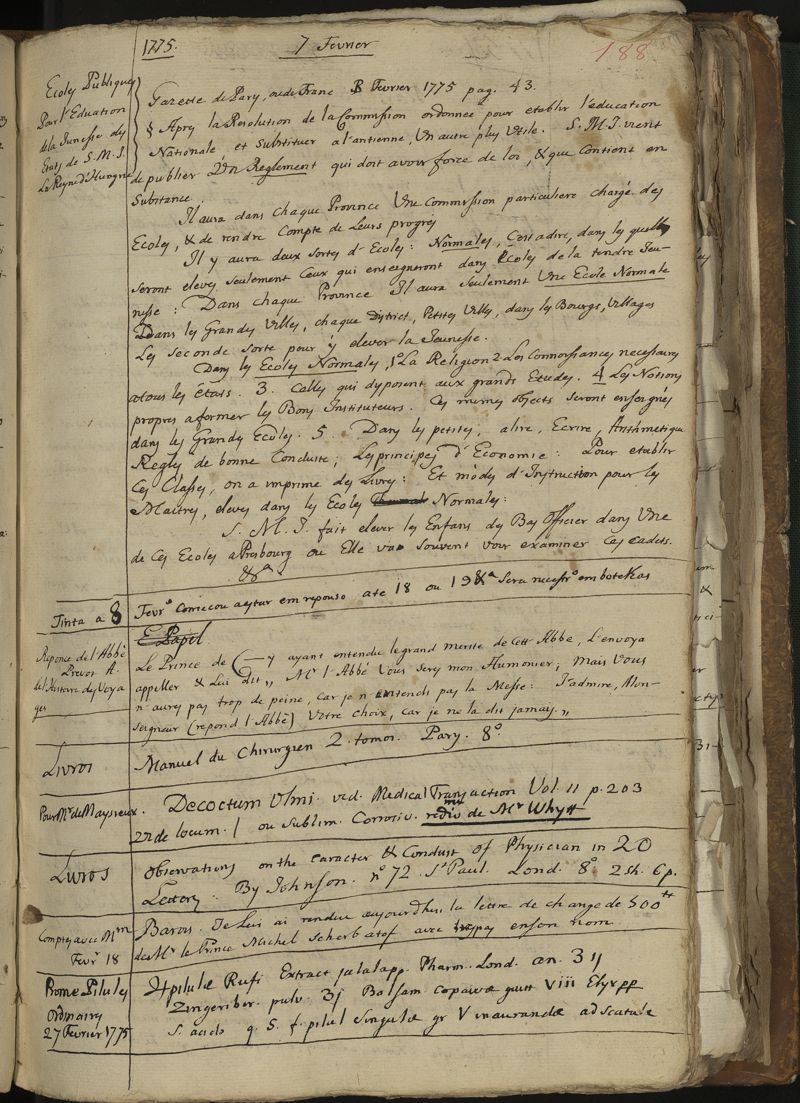 1775.
7 Fevrier
188
Ecoles Publiques
Pour l'Education
de la Jeunesse des
Etats de S. M. I.
La Reyne d'Hungrie
Gazette de Pary, ou de Franc Fevrier 1775 pag. 43.
§ Apry la Resolution de la Commission ordonnee pour etablir l'education
Nationale et Substituer a l'antienne, Un autre plus Utile. S. M. I. vient
de publier Un Reglement qui doit avoir force de loi, & que Contient en
Substance
Il aura dans chaque Province Une Commission particuliere chargé des
Ecoles, & de rendre Compte de Leurs progres
Il y aura deux Sortes d'Ecoles: Normales, C'est adire, dans les quelles
Seront elevés Seulement Ceux qui enseigneront dans Ecoles de la tendre Jeu-
nesse: Dans chaque Province Il aura Seulement Une Ecole Normale
Dans les Grandes Villes, chaque District, Petites Villes, dans les Bourgs, Villages
Les Seconde Sorte pour y elever la Jeunesse.
Dans les Ecoles Normales, 1º La Religion 2 Les Connoissances necessaires
a tous les états. 3. Celles qui dysposent aux grands Etudes. 4 Les Notions
propres a former les Bons Instituteurs. Ces memes objects Seront enseignés
dans les Grandes Ecoles. 5. Dans les petites, a lire, Ecrire, Arithmetique
Regles de bonne Conduite; Les principes d'Economie: Pour etablir
Ces Classes, on a imprime des Livres: Et modes d'Instruction pour les
Maitres, eleves dans les Ecoles Normales:
S. M. I. fait elever les Enfans des Bas Officier dans Une
de Ces Ecoles a Presbourg ou Elle va Souvent voir examiner Ces Cadets.
Tinta a 8
Fevrº Comecou a estar em repouso ate 18 ou 19 Sera necessrº embotelhas
E Papel
Reponce de l'Abbé
Prevot A.
de l'Histoire des Voya
ges
Le Prince de C—y ayant entendu le grand merite de Cett Abbé, L'envoya
appeller & Lui dit „ Mr l'Abbé Vous Serez mon Aumonier; mais Vous
n'aurez pas trop de peine, car je n'entends pas la Messe: J'admire, Mon-
Seigneur (repond l'Abbé) Votre choix, car je ne la dis jamais „
Livros
Manuel du Chirurgien 2. tomos. Parys. 8º
Pour Mr de Maysieux.
Decoctum Ulmi. vid. Medical Transaction Vol. II p. 203
de locum. / ou Sublim. Corrosiv. de Mr Whytt
Livros
Observations on the Caracter & Conduct of Physician in 20
Letters. By Johnson. nº 72. St Paul. Lond. 8º 2 sh. 6 p.
Comptes avec Mm
Fevr 18
Barois. Je lui ai rendu aujourdhui la lettre de change de 500 tt
de Mr le Prince Michel Scherbatof avec en Son nom
Prome Pilules
Ordinaires
27 Fevrier 1775
pilulæ Rufi Extract Jalapp. Pharm. Lond. an.
Zingeriber. pulv. Balsam. Copaivæ gutt VIII
S. acido q. S. f. pilul Singulæ gr V inaurandæ ad Scatulæ